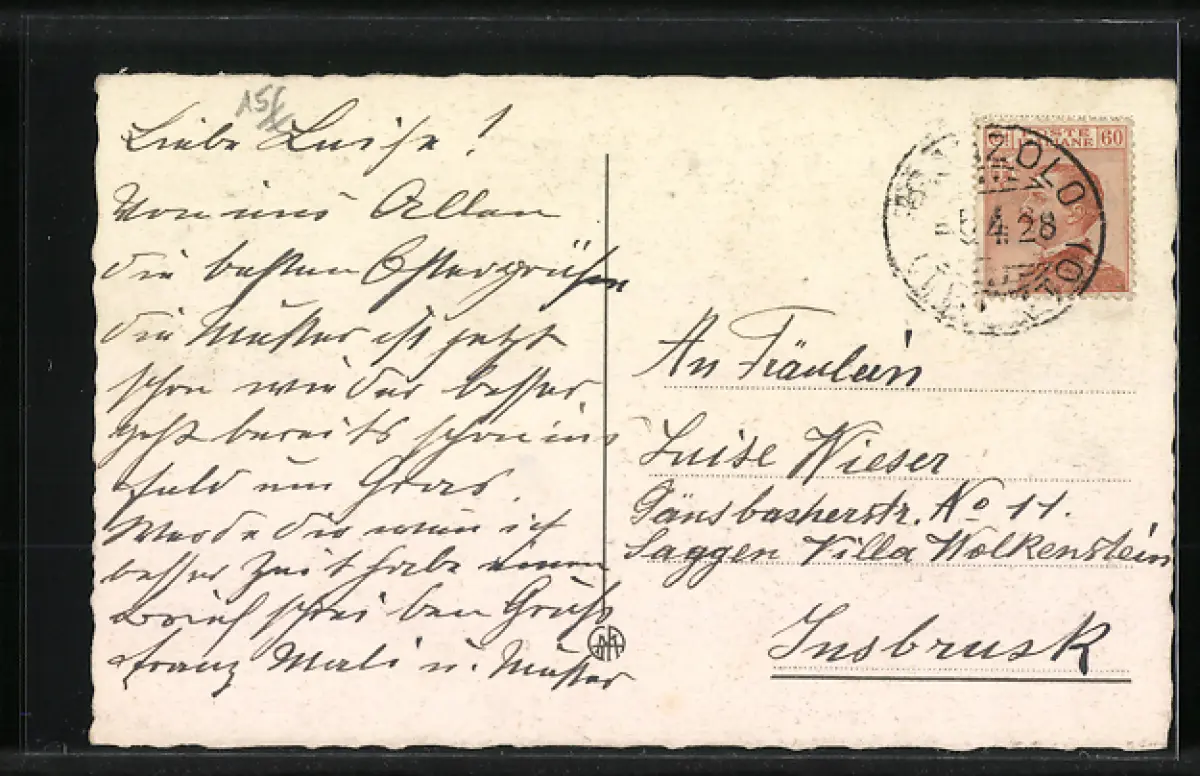 15
Liebe Luise!
Von uns Allen
die besten Ostergrüßen
die Mutter ist jetzt
schon wieder besser,
geht bereits schon ins
Feld um Gras.
Werde dir wenn ich
besser Zeit habe einen
Brief schreiben Grüßt
Franz Mali u. Mutter
POSTE ITALIANE 60
ZOLO
5.4.28
An Fräulein
Luise Wieser
Gänsbacherstr. No 11.
Saggen Villa Wolkenstein
Insbruck